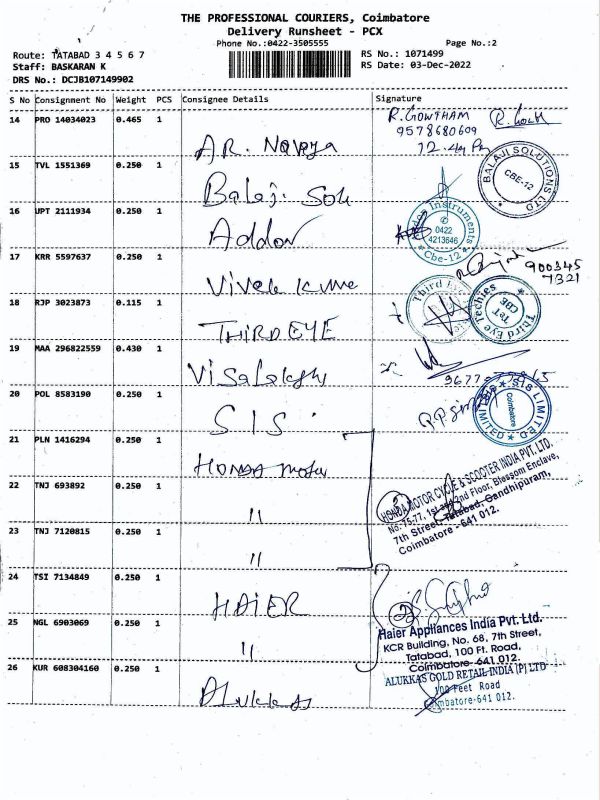 THE PROFESSIONAL COURIERS, Coimbatore
Delivery Runsheet - PCX
Phone No.:0422-3505555 Page No.:2
Route: TATABAD 3 4 5 6 7 RS No.: 1071499
Staff: BASKARAN K RS Date: 03-Dec-2022
DRS No.: DCJB107149902
S No Consignment No Weight PCS Consignee Details Signature
14 PRO 14034023 0.465 1 R. GOWTHAM
9578680609
A.R. Navya 12.
15 TVL 1551369 0.250 1 BALAJI SOLUTIONS LTD
CBE-12
Balaji Solu
16 UPT 2111934 0.250 1 Instruments
0422
4213646
Cbe-12
Addon
17 KRR 5597637 0.250 1
900345
7321
Vivek kume
18 RJP 3023873 0.115 1 Third Eye Techies
CBE
THIRD EYE
19 MAA 296822559 0.430 1
9677
Visalakshy
20 POL 8583190 0.250 1 SIS LIMITED
Coimbatore
S I S
21 PLN 1416294 0.250 1
HONDA motor
HONDA MOTOR CYCLE & SCOOTER INDIA PVT. LTD.
22 TNJ 693892 0.250 1 No. 75-77, 1st and 2nd Floor, Blossom Enclave,
7th Street, Tatabad, Gandhipuram,
Coimbatore - 641 012.
"
23 TNJ 7120815 0.250 1
"
24 TSI 7134849 0.250 1
HAIER
2
25 NGL 6903069 0.250 1 Haier Appliances India Pvt. Ltd.
KCR Building, No. 68, 7th Street,
Tatabad, 100 Ft. Road,
"
Coimbatore-641 012.
26 KUR 608304160 0.250 1 ALUKKAS GOLD RETAIL INDIA (P) LTD
100 Feet Road
Coimbatore-641 012.
Alukkas